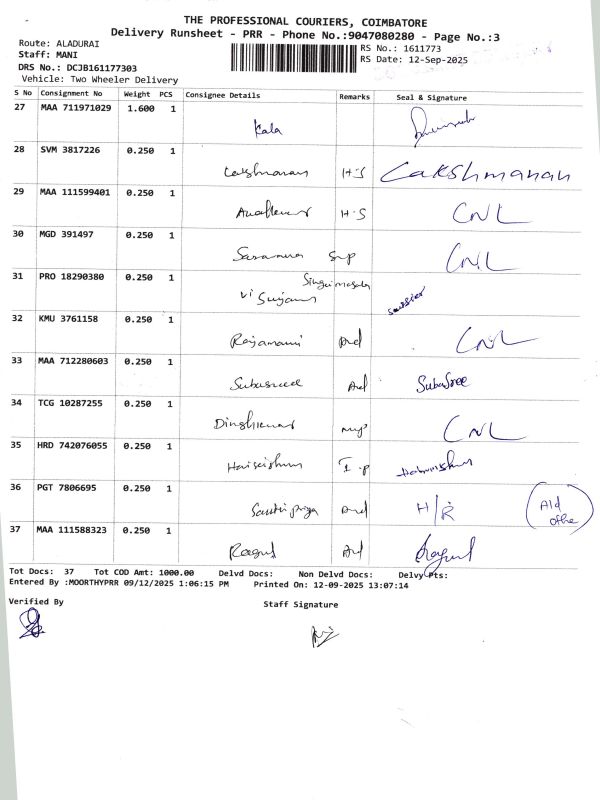 THE PROFESSIONAL COURIERS, COIMBATORE
Delivery Runsheet - PRR - Phone No.:9047080280 - Page No.:3
Route: ALADURAI
Staff: MANI
DRS No.: DCJB161177303
Vehicle: Two Wheeler Delivery
RS No.: 1611773
RS Date: 12-Sep-2025
S No Consignment No Weight PCS Consignee Details Remarks Seal & Signature
27 MAA 711971029 1.600 1
Kala
28 SVM 3817226 0.250 1
Lakshmanan H-S Lakshmanan
29 MAA 111599401 0.250 1
H-S CNL
30 MGD 391497 0.250 1
Saravana CNL
31 PRO 18290380 0.250 1
32 KMU 3761158 0.250 1
Rajamani CNL
33 MAA 712280603 0.250 1
Subasree SubaSree
34 TCG 10287255 0.250 1
CNL
35 HRD 742076055 0.250 1
36 PGT 7806695 0.250 1
H/R
37 MAA 111588323 0.250 1
Ragul Ragul
Tot Docs: 37 Tot COD Amt: 1000.00 Delvd Docs: Non Delvd Docs: Delvy Pts:
Entered By :MOORTHYPRR 09/12/2025 1:06:15 PM Printed On: 12-09-2025 13:07:14
Verified By
Staff Signature